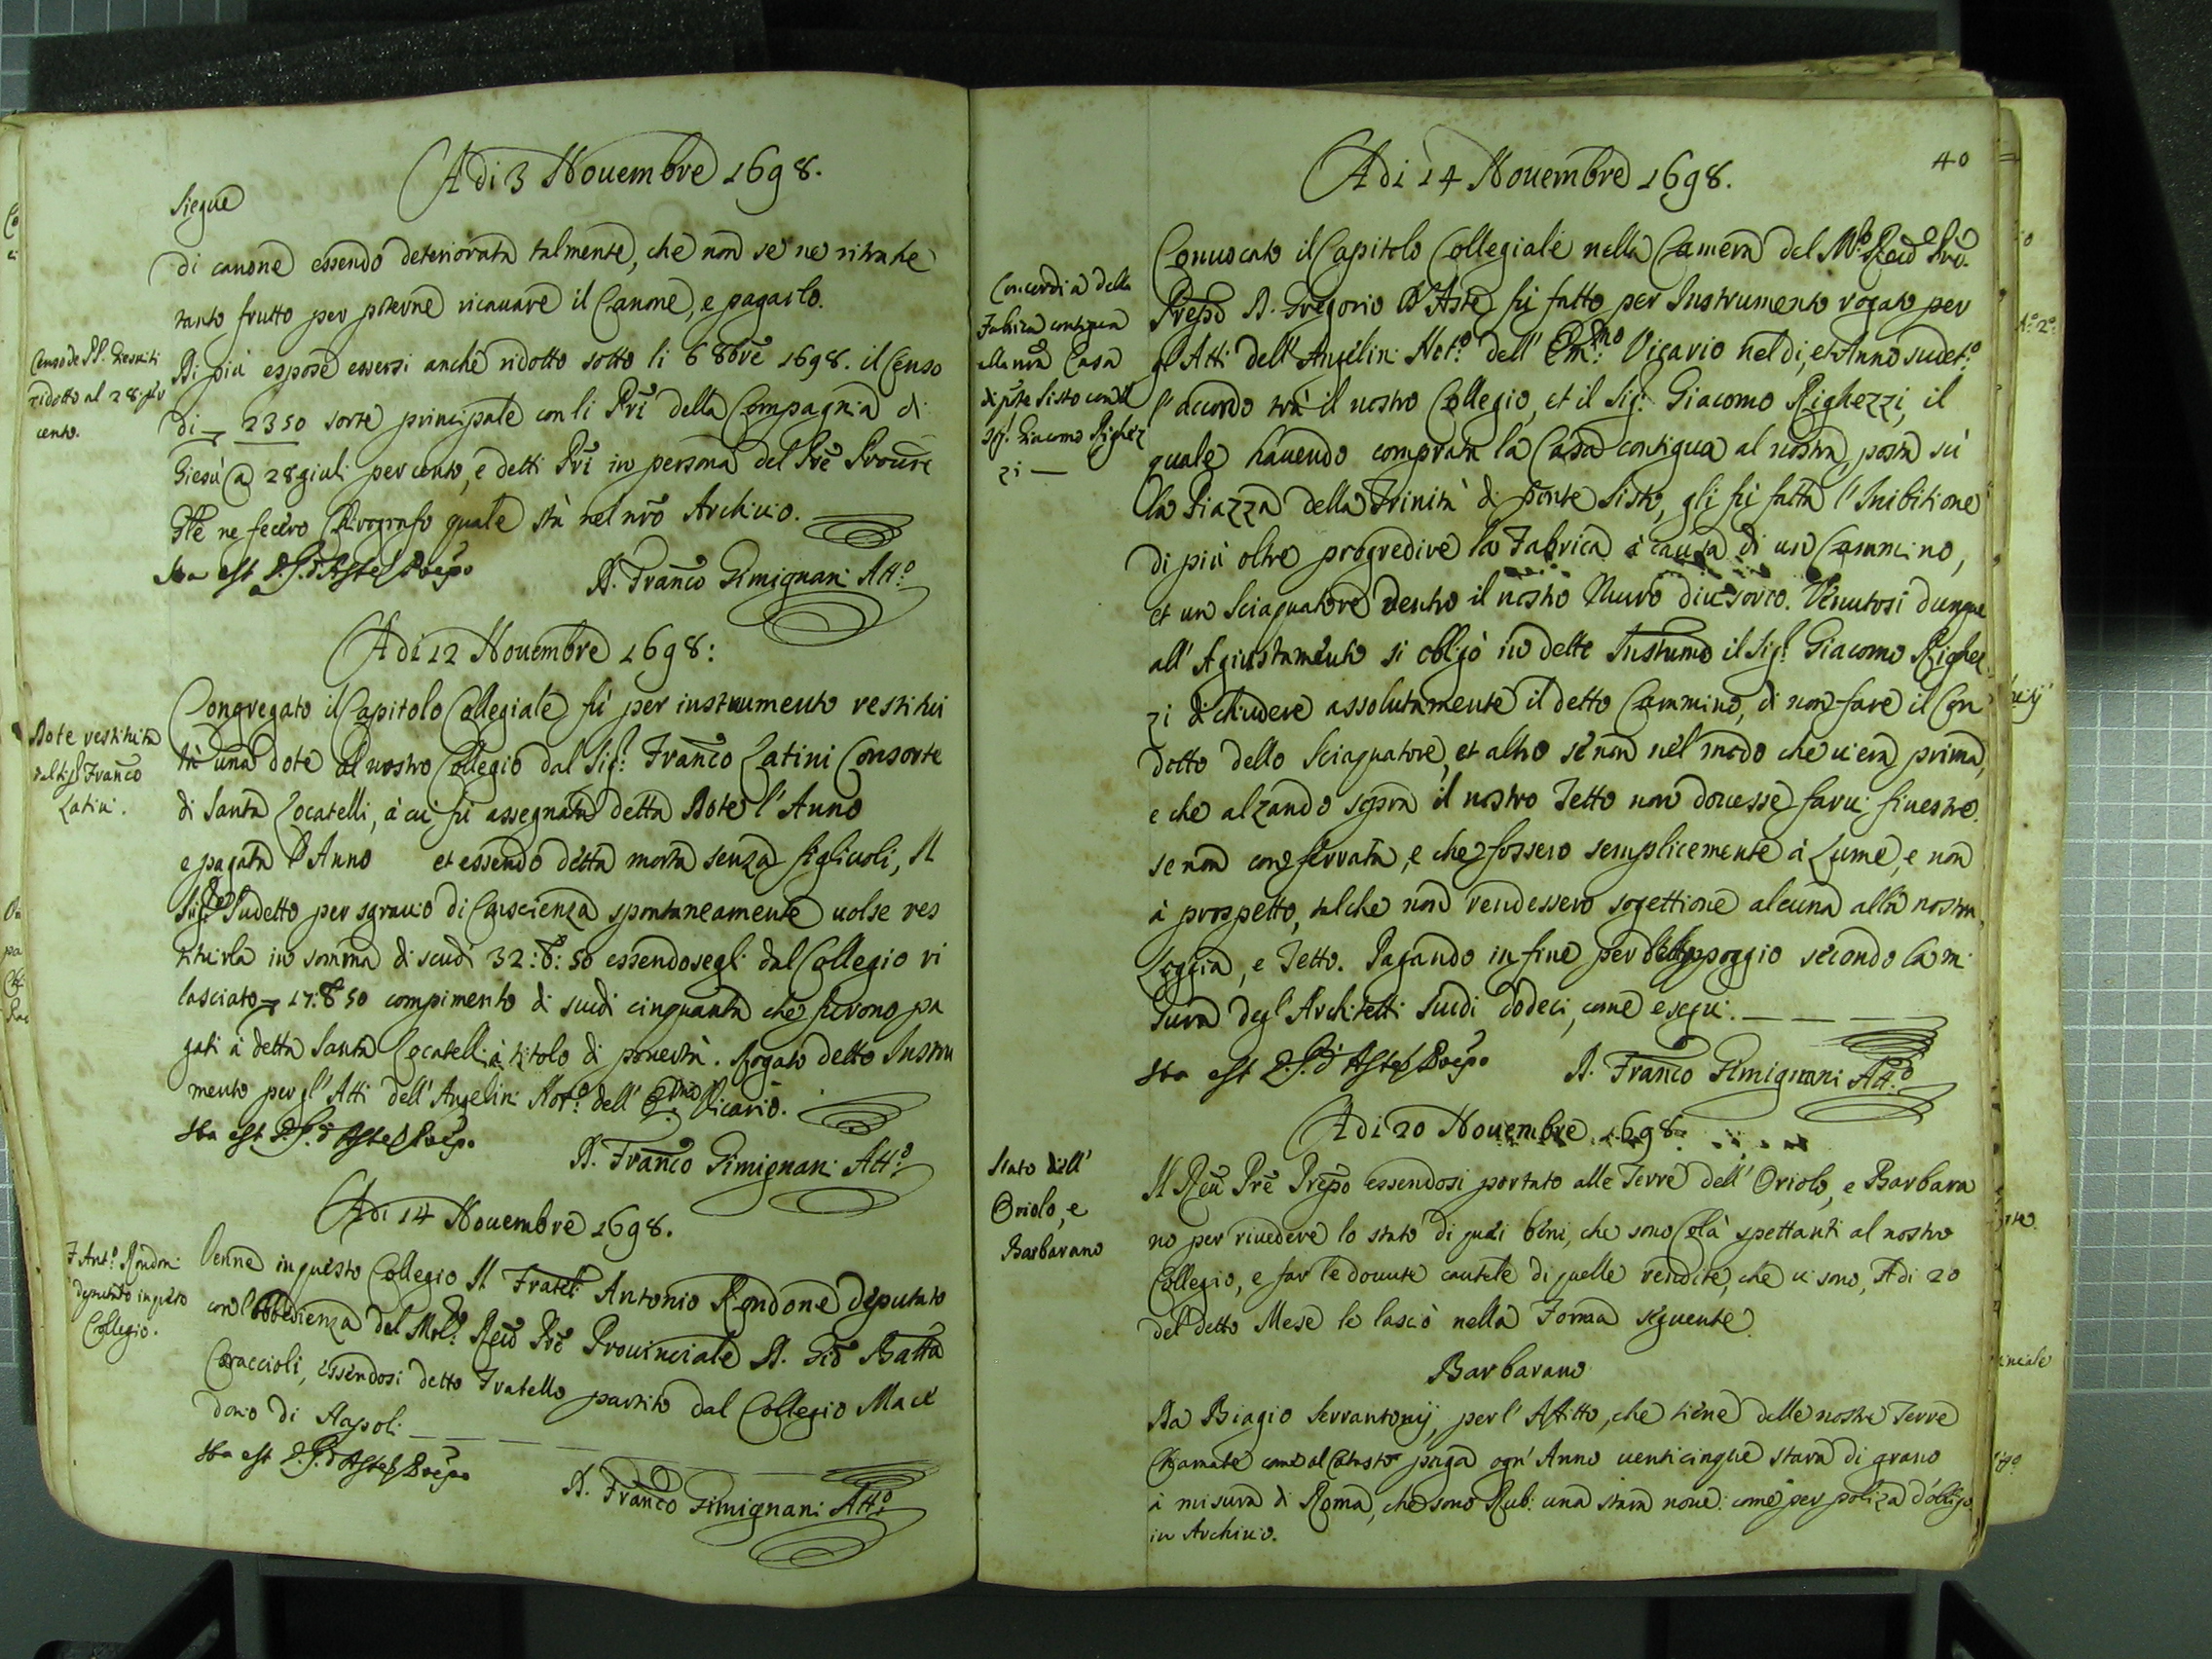 Adi 3 Nouembre 1698.
Siegue
di canone essendo deteriorata talmente, che non se ne ritrahe
tanto frutto per poterne ricauare il Canone, e pagarlo.
Censo de PP. Giesuiti
ridotto al 28 per
cento.
Di più espose essersi anche ridotto sotto li 6 8bre 1698. il Censo
di 2350 sorte principale con li Pri della Compagnia di
Giesù a 28 giuli per cento, e detti Pri in persona del Pre Procure
Gle ne fecero Chirografo quale stà nel nro Archiuio.
Ita est D. G. d'Aste Prepo
D. Franco Gimignani Att.o
Adi 12 Nouembre 1698:
Dote restituita
dal Sigr Franco
Latini.
Congregato il Capitolo Collegiale fù per instrumento restitui
tà una dote al nostro Collegio dal Sigr Franco Latini Consorte
di Santa Locatelli, à cui fù assegnata detta Dote l'Anno
e pagata l'Anno et essendo detta morta senza figliuoli, Il
Sigre Sudetto per sgrauio di Conscienza spontaneamente uolse res
tituirla in somma di scudi 32:8: 50 essendosegli dal Collegio ri
lasciato 17:8 50 compimento di scudi cinquanta che furono pa
gati à detta Santa Locatelli à titolo di pouertà. Rogato detto Instru
mento per gl'Atti dell'Angelini Not.o dell'Emo Vicario.
Ita est D. G. d'Aste Prepo
D. Franco Gimignani Att.o
Adi 14 Nouembre 1698.
F. Ant.o Rondoni
deputato in questo
Collegio.
Venne in questo Collegio Il Fratel Antonio Rondone deputato
con l'obbedienza del Mol. Reu Pre Prouinciale D. Gio Batta
Caraccioli, essendosi detto Fratello partito dal Collegio Mace
donio di Napoli
Ita est D. G. d'Aste Prepo
D. Franco Gimignani Att.o
Adi 14 Nouembre 1698.
40
Concordia della
Fabrica contigua
alla nra Casa
di pnte Sisto con il
Sigr Giacomo Righez
zi
Conuocato il Capitolo Collegiale nella Camera del Mo Reud Pre
Prepo D. Gregorio d'Aste fù fatto per Instrumento rogato per
gl'Atti dell'Angelini Not.o dell'Emmo Vicario nel dì, et Anno sudet.o
l'accordo trà il nostro Collegio, et il Sigr Giacomo Righezzi, il
quale hauendo comprata la Casa contigua al nostra, posta sù
la Piazza della Trinità di ponte Sisto, gli fù fatta l'Inibitione
di più oltre progredire la Fabrica à causa di un Cammino,
et un Sciaquatore dentro il nostro Muro diuisorio. Venutosi dunque
all'Agiustamento si obligò in detto Instumo il Sigr Giacomo Righez
zi di chiudere assolutamente il detto Cammino, di non fare il Con
dotto dello Sciaquatore, et altro sè non nel modo che u'era prima,
e che alzando sopra il nostro Tetto non douesse farui finestre,
se non con ferrata, e che fossero semplicemente à Lume, e non
à prospetto, talche non rendessero sogettione alcuna alla nostra
Loggia, e Tetto. Pagando in fine per dett'appoggio secondo la mi
sura degl'Architetti scudi dodeci, come esegui.
Ita est D. G. d'Aste Prepo
D. Franco Gimignani Att.o
Adi 20 Nouembre 1698:
Stato dell'
Oriolo, e
Barbarano
Il Reu Pre Prepo essendosi portato alle Terre dell'Oriolo, e Barbara
no per riuedere lo stato di quei beni, che sono Colà spettanti al nostro
Collegio, e far le douute cautele di quelle rendite, che ui sono, Adi 20
del detto Mese le lasciò nella Forma seguente.
Barbarano
Da Biagio Serrantonij, per l'Affitto, che tiene delle nostre Terre
Chiamate come al Catasto paga ogn'Anno uenticinque stara di grano
à misura di Roma, che sono Rub: una stara noue: come per poliza d'obligo
in Archiuio.